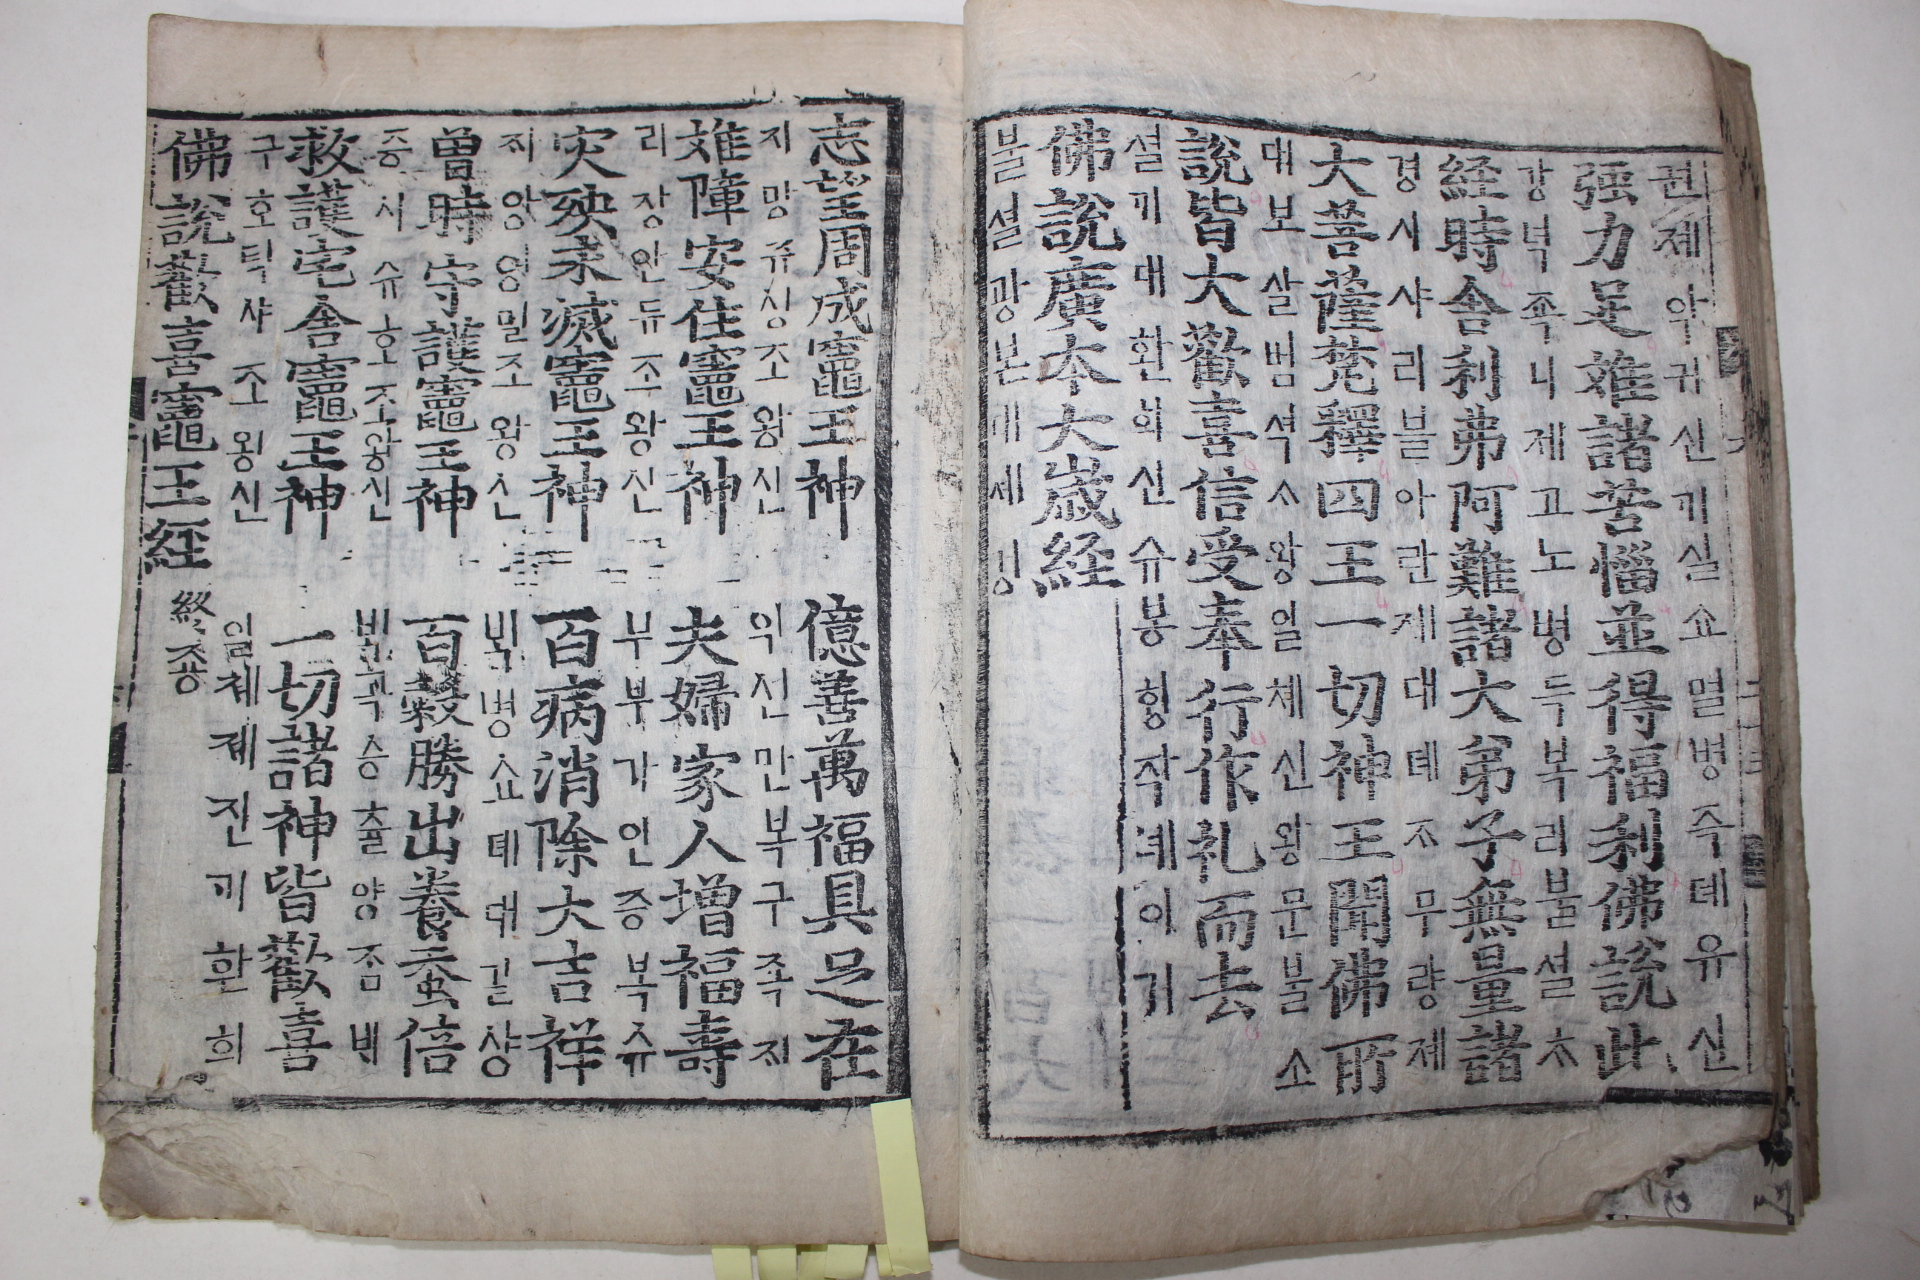 권제악귀신기실쇼멸병즉데유신
强力足難諸苦惱並得福利佛說此
강녁죡니제고노병득복리불셜ᄎ
経時舎利弗阿難諸大弟子無量諸
경시샤리블아란제대뎨ᄌ무량졔
大菩薩梵釋四王一切神王聞佛所
대보살범셕ᄉ왕일쳬신왕문불소
說皆大歡喜信受奉行作礼而去
셜ᄀᆡ대환희신슈봉ᄒᆡᆼ작녜이거
佛說廣本大歲経
불셜광본대셰경
志望周成竈王神 億善萬福具足在
지망쥬싱조왕신 억션만복구죡ᄌᆡ
难障安住竈王神 夫婦家人增福壽
리쟝안듀조왕신 부부가인증복슈
灾殃永滅竈王神 百病消除大吉祥
ᄌᆡ앙영멸조왕신 ᄇᆡᆨ병쇼뎨대길샹
曽時守護竈王神 百穀勝出養蚕倍
증시슈호조왕신 ᄇᆡᆨ곡승츌양ᄌᆞᆷᄇᆡ
救護宅舎竈王神 一切諸神皆歡喜
구호ᄐᆡᆨ샤조왕신 일쳬졔진ᄀᆡ환희
佛說歡喜竈王経 終죵